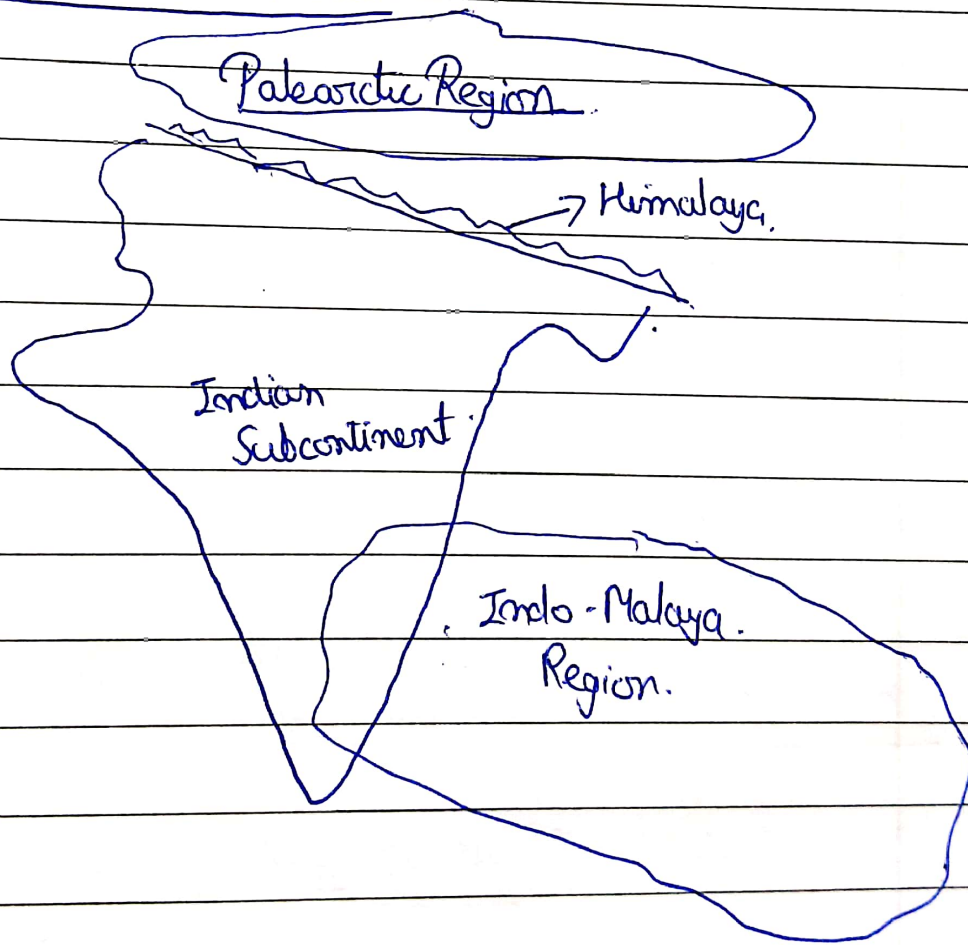 Palearctic Region.
Himalaya.
Indian
Subcontinent
Indo-Malaya.
Region.